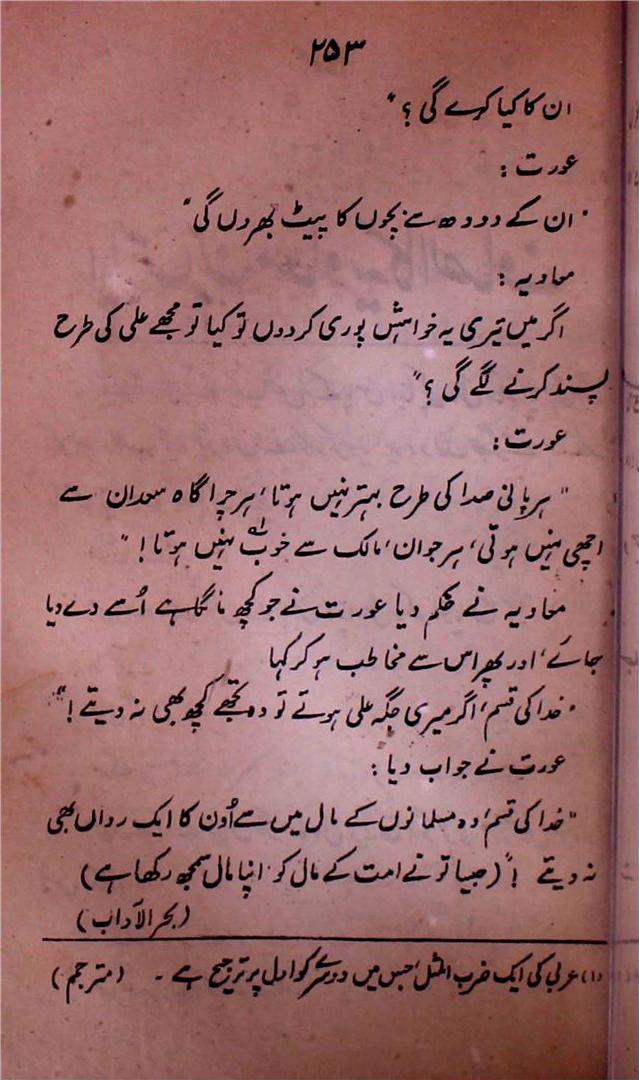 ۲۵۳
ان کا کیا کرے گی؟"
عورت :
"ان کے دودھ سے بچوں کا پیٹ بھر دں گی"
معاویہ :
اگر میں تیری یہ خواہش پوری کر دوں تو کیا تو مجھے علی کی طرح
پسند کرنے لگے گی؟"
عورت :
"ہر پانی صدا کی طرح بہتر نہیں ہوتا، ہر چراگاہ سعدان سے
اچھی نہیں ہوتی، ہر جوان، مالک سے خوب نہیں ہوتا!"
معاویہ نے حکم دیا عورت نے جو کچھ مانگا ہے اُسے دے دیا
جائے، اور پھر اس سے مخاطب ہو کر کہا
"خدا کی قسم، اگر میری جگہ علی ہوتے تو وہ تجھے کچھ بھی نہ دیتے!"
عورت نے جواب دیا :
"خدا کی قسم، وہ مسلمانوں کے مال میں سے اُون کا ایک رواں بھی
نہ دیتے!" (جیسا تو نے امت کے مال کو اپنا مال سمجھ رکھا ہے)
(بحر الآداب)
(۱) عربی کی ایک ضرب المثل، جس میں دوسرے کو اول پر ترجیح ہے۔ (مترجم)